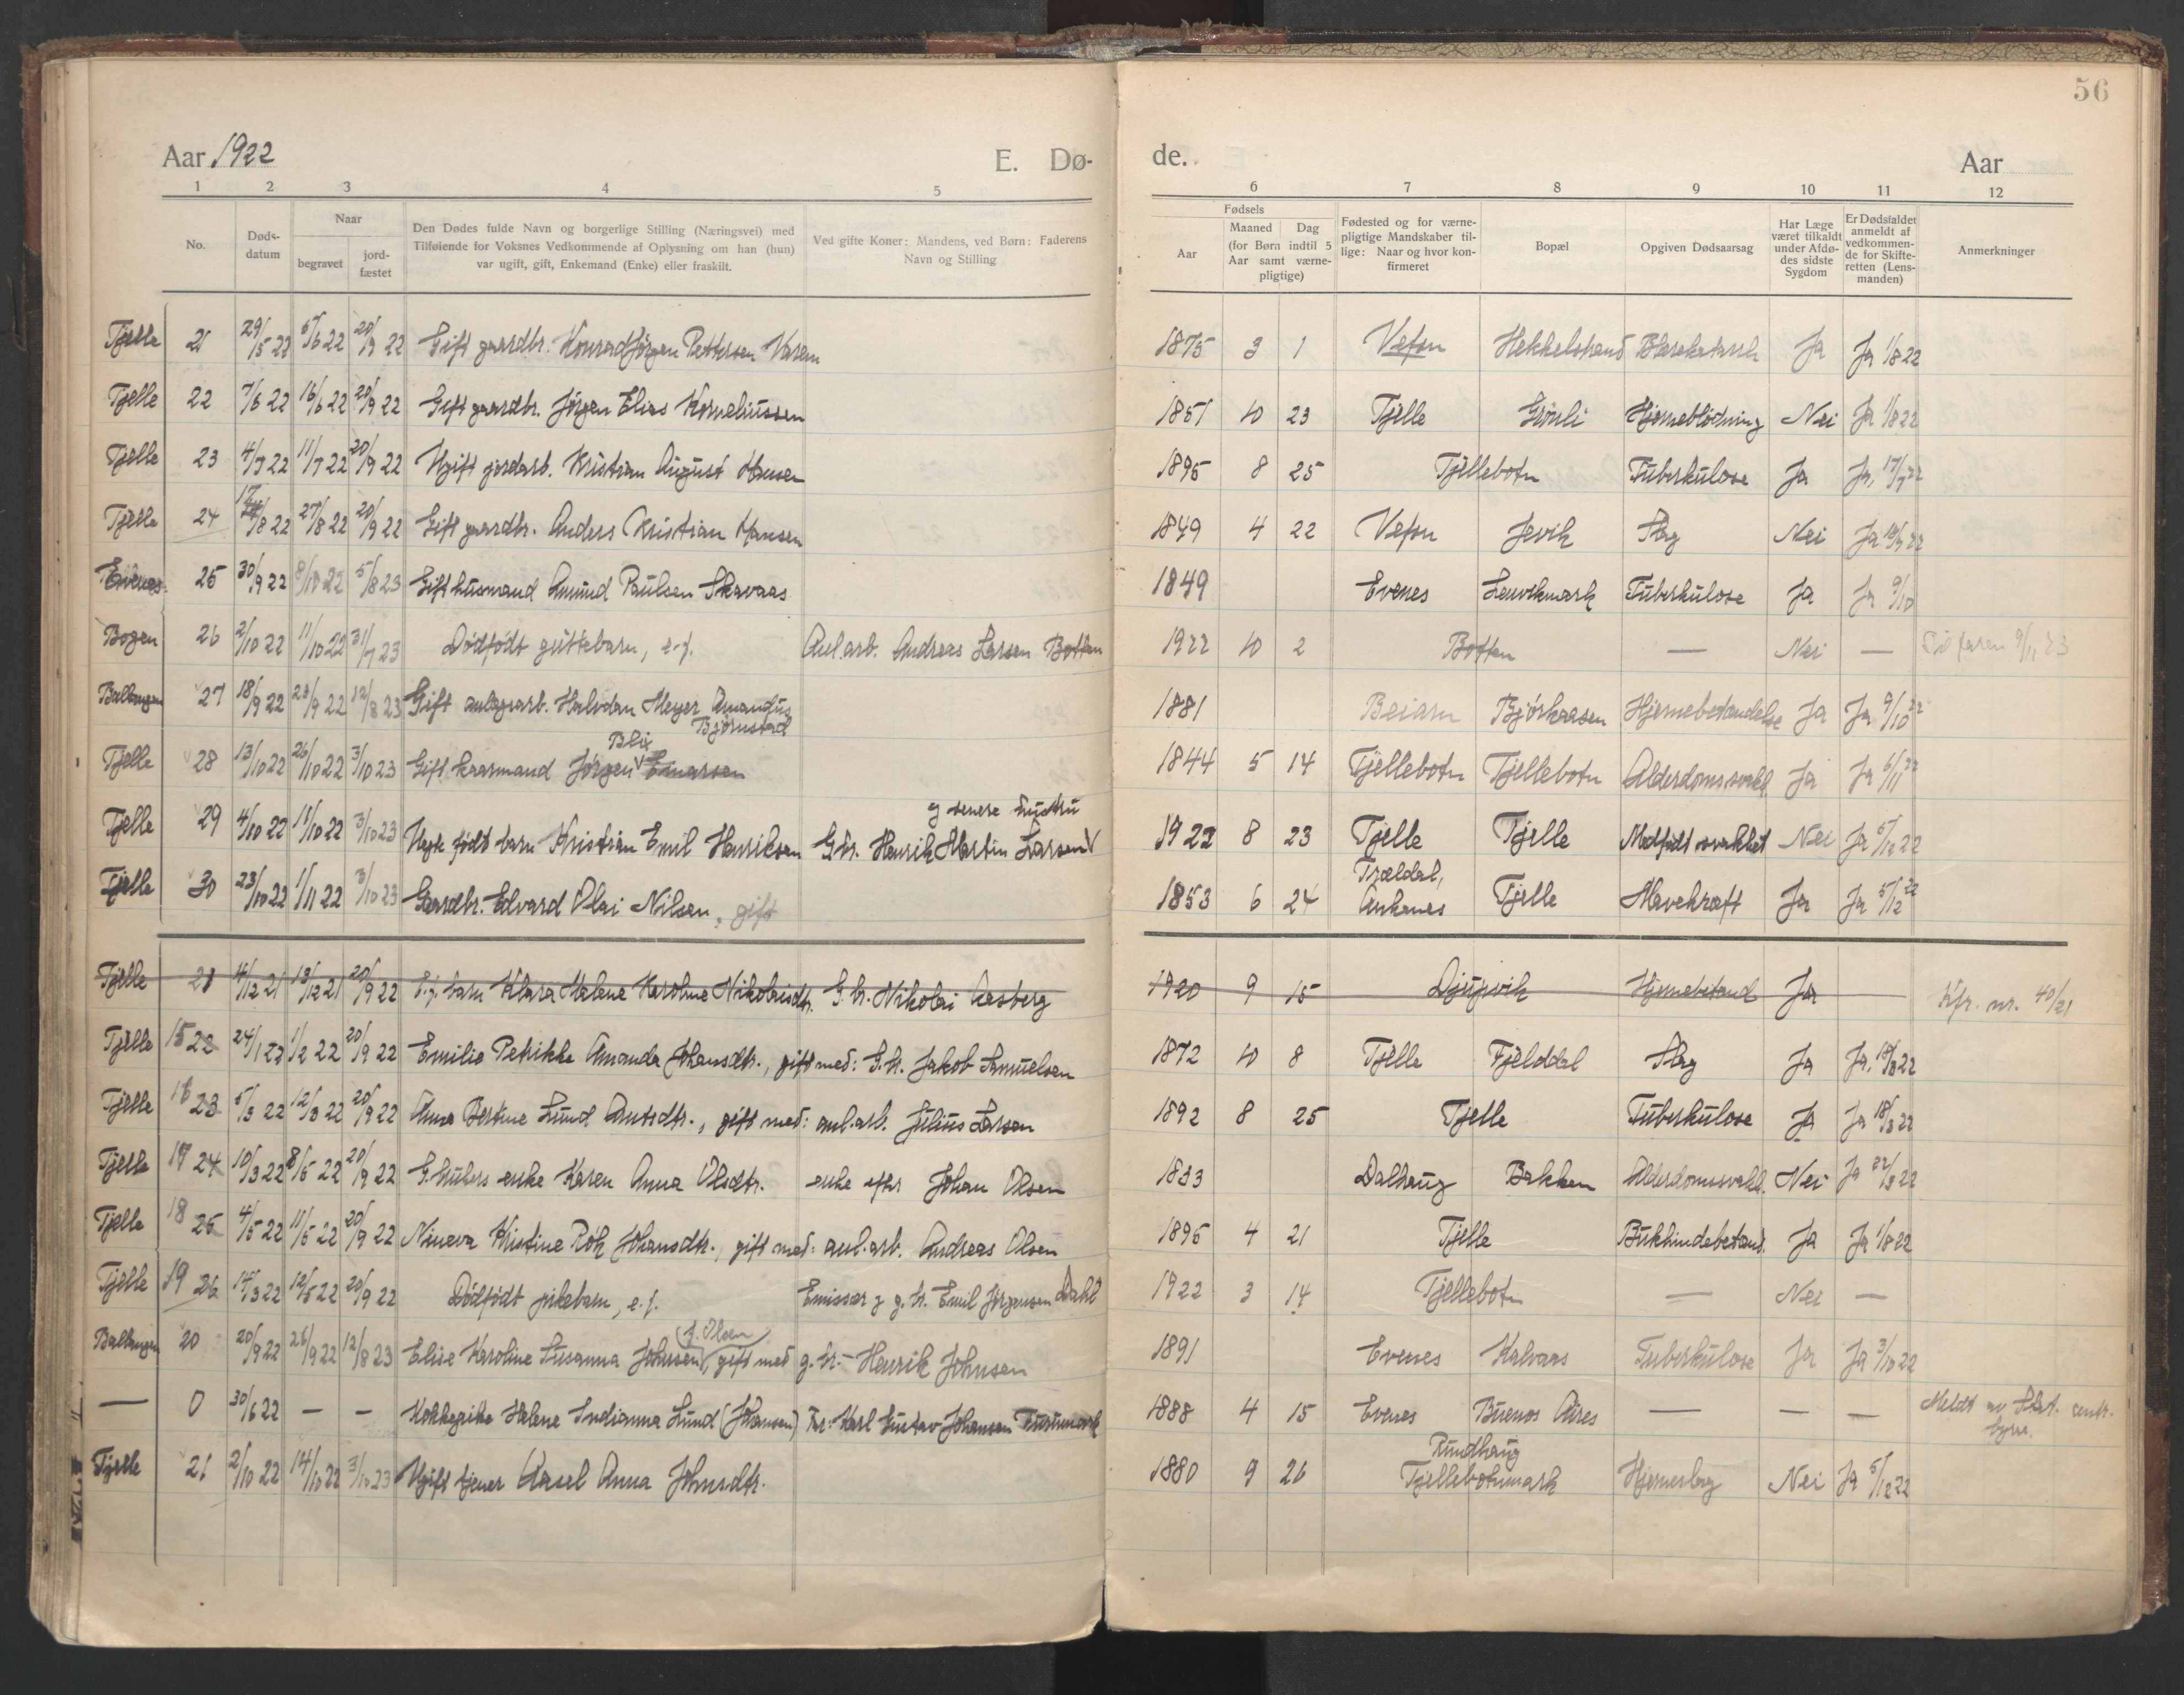 56
Aar 1922 E. Dø-
de. Aar
1 2 3 4 5
6 7 8 9 10 11 12
No.
Døds-
datum
Naar
begravet
jord-
fæstet
Den Dødes fulde Navn og borgerlige Stilling (Næringsvei) med
Tilføiende for Voksnes Vedkommende af Oplysning om han (hun)
var ugift, gift, Enkemand (Enke) eller fraskilt.
Ved gifte Koner: Mandens, ved Børn: Faderens
Navn og Stilling
Fødsels
Aar
Maaned Dag
(for Børn indtil 5
Aar samt værne-
pligtige)
Fødested og for værne-
pligtige Mandskaber til-
lige: Naar og hvor kon-
firmeret
Bopæl
Opgiven Dødsaarsag
Har Læge
været tilkaldt
under Afdø-
des sidste
Sygdom
Er Dødsfaldet
anmeldt af
vedkommen-
de for Skifte-
retten (Lens-
manden)
Anmerkninger
Tjelle 21 29/5 22 5/6 22 20/9 22 Gift gaardbr. Konrad Jörgen Pettersen 1875 3 1 Vefsn Ja Ja 1/8 22
Tjelle 22 7/6 22 16/6 22 20/9 22 Gift gaardbr. Jörgen Elias Korneliussen 1851 10 23 Tjelle Grönli Hjerneblödning Nei Ja 1/8 22
Tjelle 23 4/7 22 11/7 22 20/9 22 Ugift jordarb. Kristian August Hansen 1895 8 25 Tjellebotn Tuberkulose Ja Ja, 17/7 22
Tjelle 24 17/8 22 27/8 22 20/9 22 Gift gaardbr. Anders Kristian Hansen 1849 4 22 Vefsn Jevik Slag Nei Ja 18/9 22
Evenes 25 30/9 22 8/10 22 5/8 23 Gift husmand Amund Paulsen Skavaas 1849 Evenes Lenvikmark Tuberkulose Ja Ja 9/10
Bogen 26 2/10 22 11/10 22 31/7 23 Dödfödt guttebarn, e.f. Anl.arb. Andreas Larsen Botten 1922 10 2 Botten — Nei —
Ballangen 27 18/9 22 23/9 22 12/8 23 Gift anlagsarb. Halvdan Meyer Amandus
Björnstad 1881 Beiarn Björkaasen Hjernebetændelse Ja Ja 9/10 22
Blix
Tjelle 28 13/10 22 26/10 22 3/10 23 Gift kaarmand Jörgen Enarsen 1844 5 14 Tjellebotn Tjellebotn Alderdomssvakh. Ja Ja 6/11 22
g senere hustru
Tjelle 29 4/10 22 11/10 22 3/10 23 Uegte födt barn Kristian Emil Henriksen Gbr. Henrik Martin Larsen 1922 8 23 Tjelle Tjelle Medfödt svakhet Nei Ja 5/12 22
Trældal,
Tjelle 30 23/10 22 1/11 22 3/10 23 Gaardbr. Edvard Olai Nilsen, gift 1853 6 24 Ankenes Tjelle Mavekræft Ja Ja 5/12 22
Tjelle 21 4/12 21 13/12 21 20/9 22 E.f. barn Klara Malene Karoline Nikolaisdtr. G.br. Nikolai Aasberg 1920 9 15 Djupvik Hjernebetænd Ja — Kfr. nr. 40/21
Tjelle 15 22 24/1 22 1/2 22 20/9 22 Emilie Petrikke Amanda Johansdtr., gift med: G.br. Jakob Samuelsen 1872 10 8 Tjelle Fjelddal Slag Ja Ja, 18/3 22
Tjelle 16 23 5/3 22 12/3 22 20/9 22 Anna Bertine Lund Antsdtr., gift med: anl.arb. Julius Larsen 1892 8 25 Tjelle Tuberkulose Ja Ja 18/3 22
Tjelle 17 24 10/3 22 8/5 22 20/9 22 enke Karen Anna Olsdtr. enke efter Johan Olsen 1833 Dalhaug Bakken Alderdomssvakh. Nei Ja 22/3 22
Tjelle 18 25 4/5 22 11/5 22 20/9 22 Nineva Kristine Rök Johansdtr., gift med: anl.arb. Andreas Olsen 1895 4 21 Tjelle Bukhindebetænd. Ja Ja 1/8 22
Tjelle 19 26 14/3 22 12/5 22 20/9 22 Dödfödt pikebarn, e.f. Emissær g g.br. Emil Jörgensen Dahl 1922 3 14 Tjellebotn — Nei —
(f. Olsen)
Ballangen 20 20/9 22 26/9 22 12/8 23 Elise Karoline Susanna Johnsen, gift med g.br. Henrik Johnsen 1891 Evenes Kalvaas Tuberkulose Ja Ja 3/10 22
— 0 30/6 22 — — Kokkepike Helene Indianna Lund (Johansen) Fr: Karl Gustav Johansen 1888 4 15 Evenes Buenos Aires — — — Meldt av Stat. centr.
byrå.
Rundhaug
Tjelle 21 2/10 22 14/10 22 3/10 23 Ugift tjener Aasel Anna Johnsdtr. 1880 9 26 Tjellebotnmark Hjerneslag Nei Ja 5/12 22